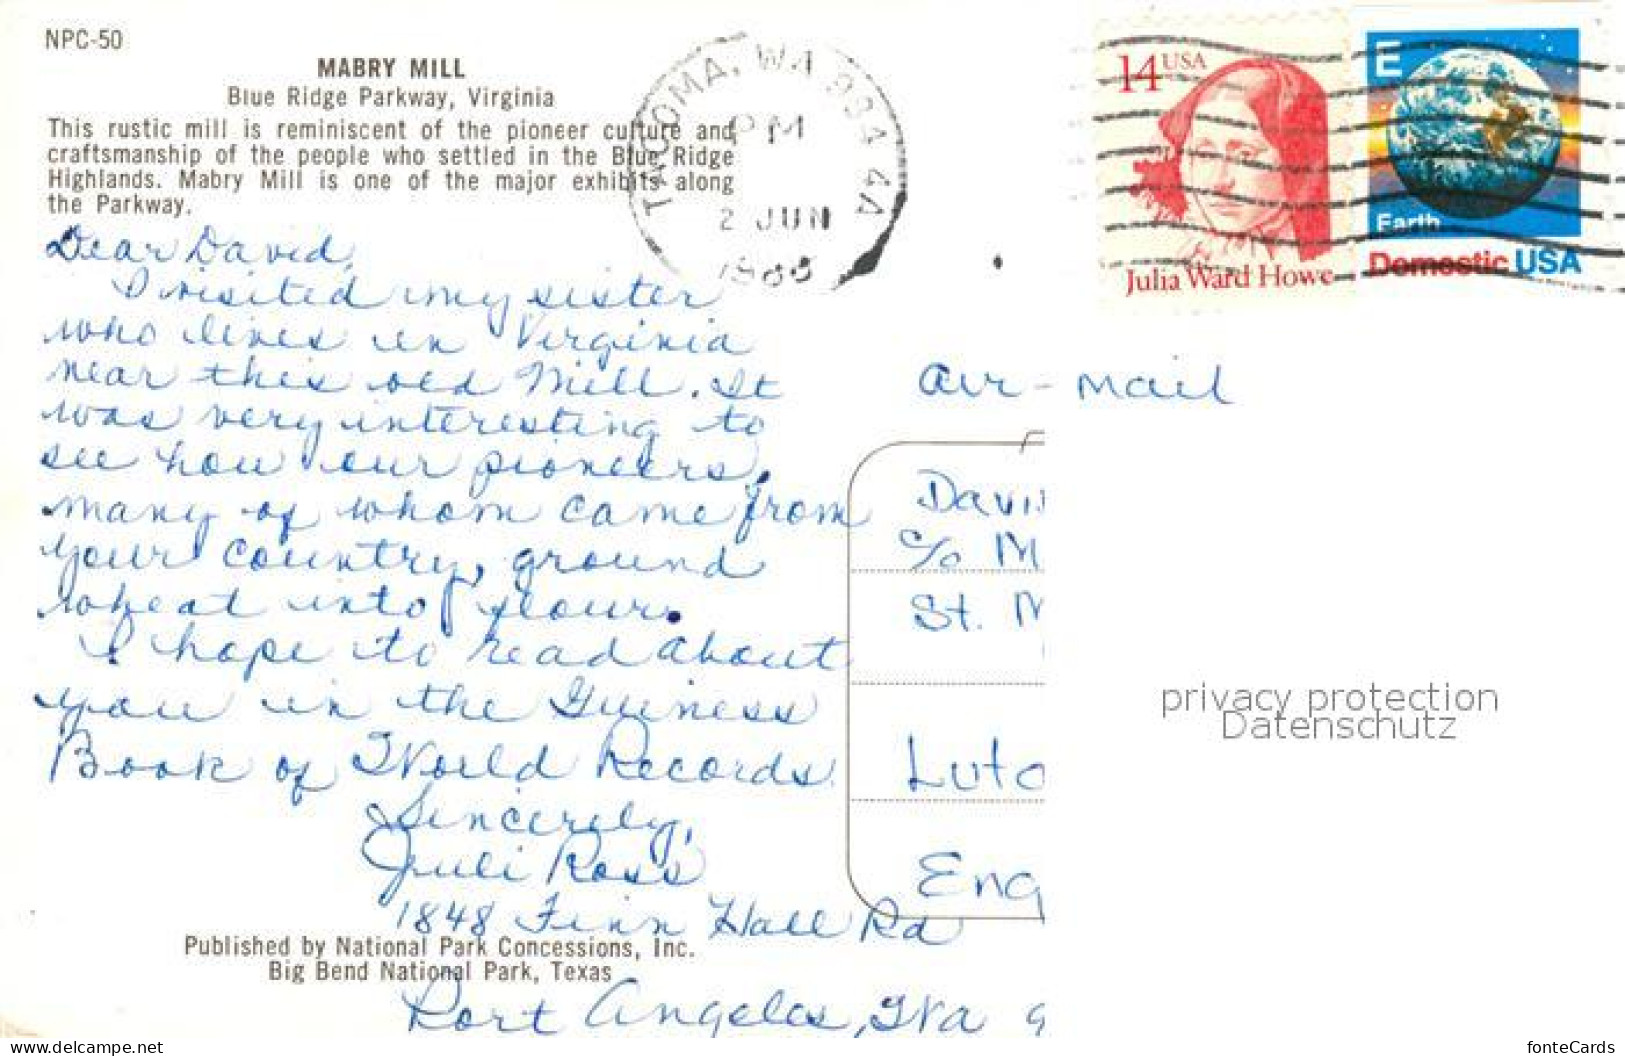 NPC-50
MABRY MILL
Blue Ridge Parkway, Virginia
This rustic mill is reminiscent of the pioneer culture and
craftsmanship of the people who settled in the Blue Ridge
Highlands. Mabry Mill is one of the major exhibits along
the Parkway.
TACOMA, WA 984 4A
PM
2 JUN
14 USA
Julia Ward Howe
E
Earth
Domestic USA
Dear David,
I visited my sister
who lives in Virginia
near this old Mill. It
was very interesting to
see how our pioneers,
many of whom came from
your country, ground
wheat into flour.
I hope to read about
you in the Guiness
Book of World Records.
Sincerely,
Juli Ross
1848 Finn Hall Rd
Port Angeles, Wa 9
Published by National Park Concessions, Inc.
Big Bend National Park, Texas
air-mail
Davi
c/o M
St. M
Luto
Eng
privacy protection
Datenschutz
www.delcampe.net
fonteCards